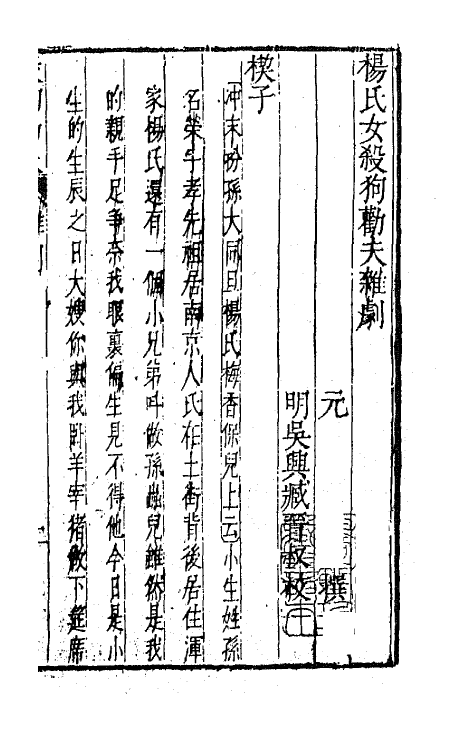 楊氏女殺狗勸夫雜劇
元 撰
明吳興臧晉叔校
楔子
冲末扮孫大同旦楊氏梅香保兒上云小生姓孫
名榮字孝先祖居南京人氏在土街背後居住渾
家楊氏還有一個小兄弟叫做孫蟲兒雖然是我
的親手足爭奈我眼裏偏生見不得他今日是小
生的生辰之日大嫂你與我卧羊宰猪做下筵席